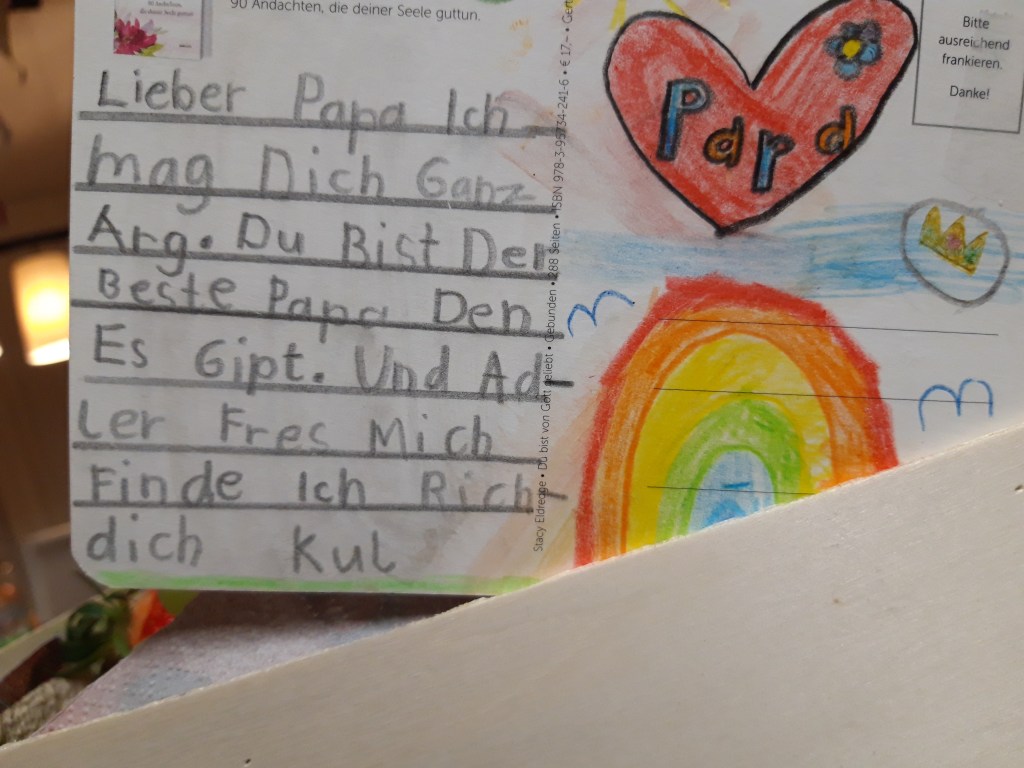 90 Andachten, die deiner Seele guttun.
Lieber Papa Ich
mag Dich Ganz
Arg. Du Bist Der
Beste Papa Den
Es Gipt. Und Ad-
ler Fres Mich
Finde Ich Rich-
dich Kul
Stacy Eldredge • Du bist von Gott geliebt • Gebunden • 288 Seiten • ISBN 978-3-95734-241-6 • € 17,– •
Papa
Bitte
ausreichend
frankieren.
Danke!